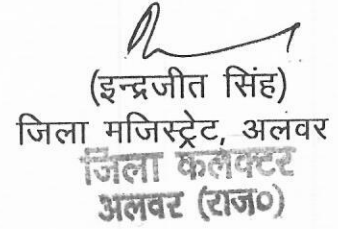 (इन्द्रजीत सिंह)
जिला मजिस्ट्रेट, अलवर
जिला कलेक्टर
अलवर (राज०)